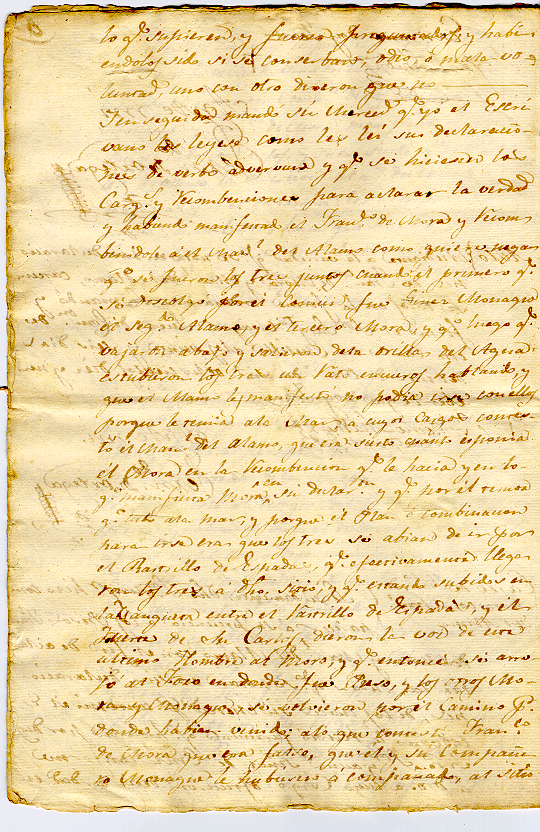 lo q.e supieren, y fueren preguntados; y habi
endolossido si se conserbaro, odio, ó mala vo
luntad, uno con otro dixeron que no
I en seguida mandó sú Merced q.e yó el Escri
vano les leyese como les leí sus declaracio
nes de verbo adverbum y q.e se hiciesen los
Carg.s y Recombenciones para aclarar la verdad
y habiendo manifestado el Fran.co de Mora y Recom
biniendole á el Man.l del Alamo como quiere negar
q.e se fueron los tres juntos cuando el primero q.e
se descolgo por el comun fue Monaque
el seg.do Alamo, y el tercero Mora, y q.e luego q.e
vajaron abajo y salieron de la orillas del Agua
estubieron los tres un Rato encueros hablando, y
que el Alamo les manifestó no podia irse con ellos
porque le temia ala Mar, á cuyos Cargos contes
tó el Man.l del Alamo, que era sierto cuanto esponia
el Mora en la Recombencion q.e le hacia y en lo
q.e manifiesta Mora en su declar.on y q.e por el temor
q.e tubo ala mar, y porque el Plan ó combinacion
para irse era que los tres se abian de ir por
el Rastrillo de Espada, q.e efectivamente llega
ron los tres á dho. sitio, y q.e estando subidos en
la Banqueta entre el Rastrillo de Espada, y el
Fuerte de Sn Carlos, dieron la voz de este
ultimo Hombre al Moro; y q.e entonces se arro
jo al Foso en donde fue Preso, y los otros Mo
ra y Monaque, se volvieron por el camino p.r
donde habian venido: alo que contestó Fran.co
de Mora que era falso, que el y su Compañe
ro Monaque le hubiesen acompañado, al sitio